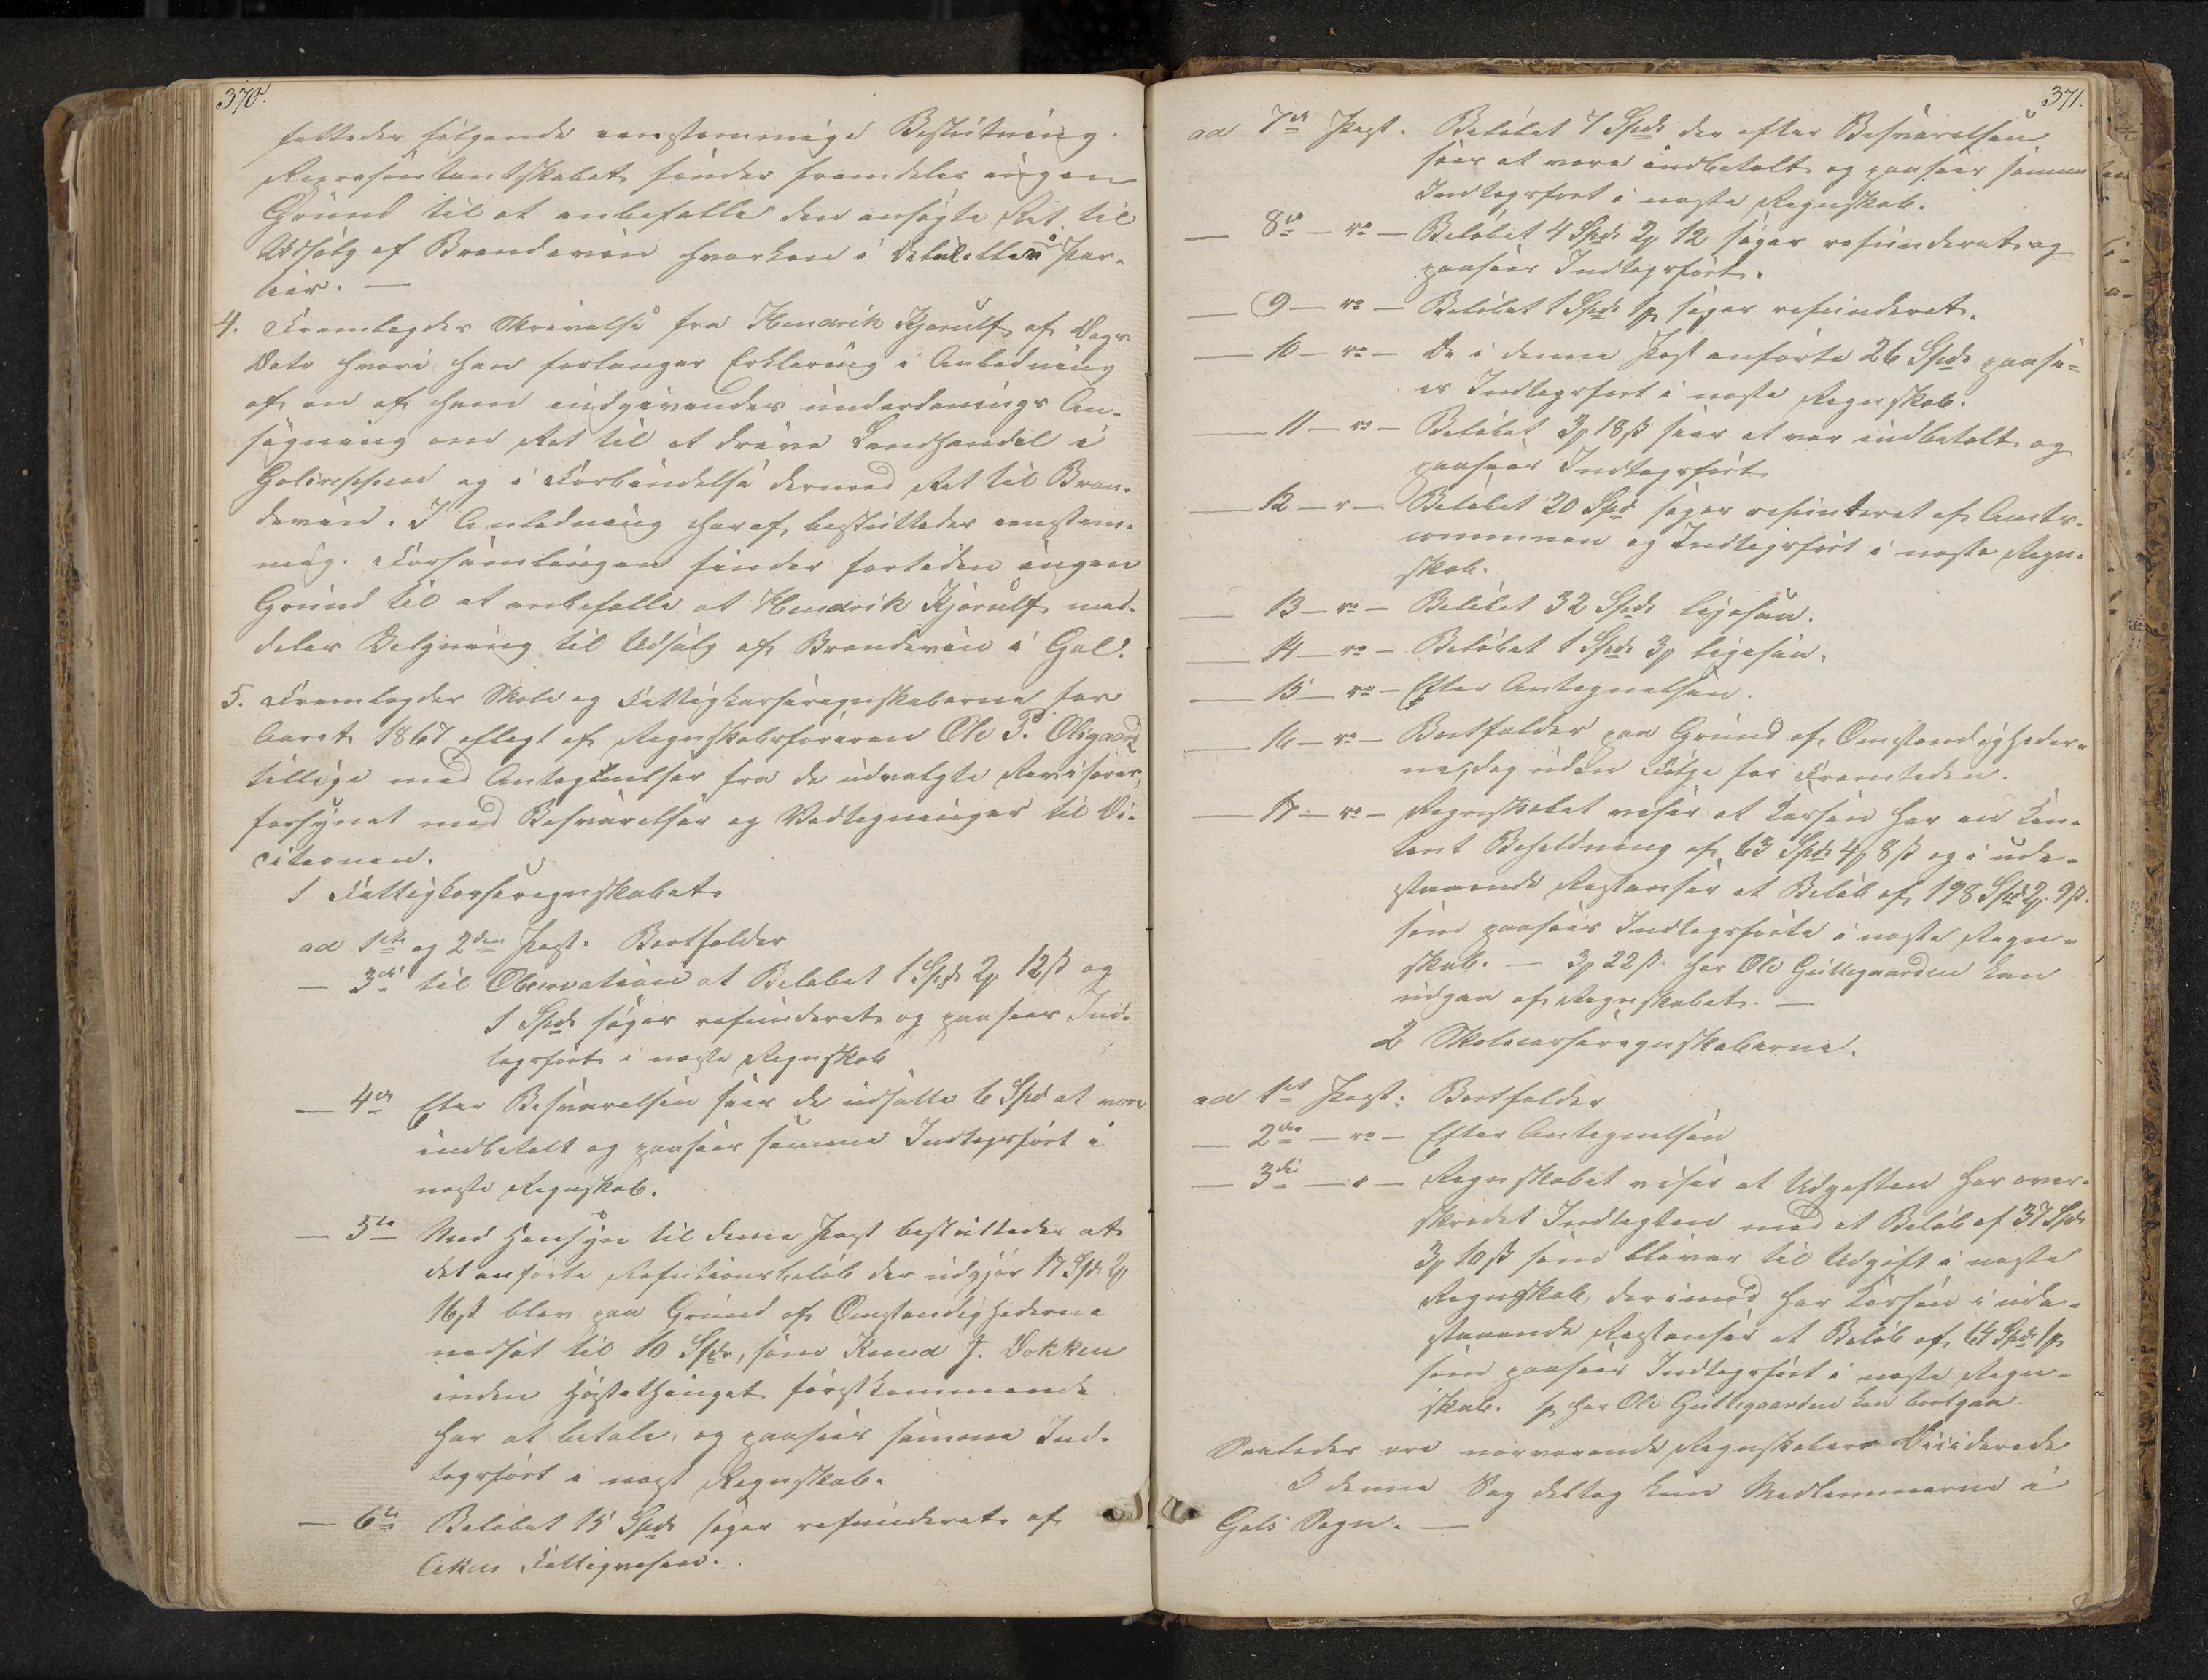 370.
fattedes følgende eenstemmige Beslutning.
Representantskabet finder fremdeles ingen
Grund til at anbefalle den ansøgte Ret til
Udsalg af Brændeviin hverken i Detail eller i Par-
tier. —
4. Fremlagdes Skrivelse fra Hendrik Kjerulf af Dags
Dato hvori han forlanger Erklæring i Anledning
af en af ham indgivendes underdanings An-
søgning om Ret til at drive Landhandel i
Gol og i Forbindelse dermed Ret til Bræn-
deviin. I Anledning heraf besluttedes eenstem-
mig. Forsamlingen finder fortiden ingen
Grund til at anbefalle at Hendrik Kjerulf med-
deles Bevilgning til Udsalg af Brændeviin i Gol.
5. Fremlagdes Skole og Fattigkasseregnskaberne for
Aaret 1867 aflagt af Regnskabsføreren Ole T. Olsgaard
tillige med Antegnelser fra de udvalgte Revisorer,
forsynet med Besvarelser og Vedtegninger til De-
citionen.
1 Fattigkasseregnskabet
ad 1ste og 2den Post. Bortfalder
— 3die til Observation at Beløbet 1 Spd 2 ort 12 ß og
1 Spd. søges refunderet og paasees Ind-
tegsført i næste Regnskab
— 4de Efter Besvarelsen sees de udsatte 6 Spd at være
indbetalt og paasees samme Indtegsført i
næste Regnskab.
— 5te Med Hensyn til denne Post besluttedes at
det anførte Refutionsbeløb der udgjør 17 Spd. 2 ort
16 ß blev paa Grund af Omstændighederne
nedsat til 10 Spd., som Knud J. Dokken
inden Høstethinget førstkommende
har at betale, og paasees samme Ind-
tegsført i næst Regnskab.
— 6te Beløbet 15 Spd. søges refunderet af
Akers Fattigvæsen.
371.
ad 7de Post. Beløbet 7 Spd. der efter Besvarelsen
sees at være indbetalt og paasees samme
Indtegsført i næste Regnskab.
— 8de — ro — Beløbet 4 Spd. 2 ort 12 søges refunderet og
paasees Indtegsført.
— 9 — ro — Beløbet 1 Spd. 1 ort søges refunderet.
— 10 — ro — De i denne Post anførte 26 Spd. paase-
es Indtegsført i næste Regnskab.
— 11 — ro — Beløbet 3 ort 18 ß sees at vær indbetalt og
paasees Indtegsført
— 12 — r — Beløbet 20 Spd søges refunderet af Amts-
communen og Indtegsført i næste Regn-
skab.
— 13 — ro — Beløbet 32 Spd. ligesaa.
— 14 — ro — Beløbet 1 Spd. 3 ort ligesaa.
— 15 — ro — Efter Antegnelsen.
— 16 — ro — Bortfalder paa Grund af Omstændigheder-
ne, dog uden Følge for Fremtiden.
— 17 — ro — Regnskabet viser at Kassen har en Con-
tant Beholdning af 63 Spd. 4 ort 8 ß og i ude-
staaende Restanser et Beløb af 198 Spd 2 ort 9 ß.
som paasees Indtegsførte i næste Regn-
skab. — 3 ort 22 ß. hos Ole Gullegaarden kan
udgaa af Regnskabet. —
2 Skolecasseregnskaberne.
ad 1ste Post. Bortfalder
— 2den — ro — Efter Antegnelsen
— 3die — r — Regnskabet viser at Udgiften har over-
skredet Indtegten med et Beløb af 37 Spd.
3 ort 10 ß som bliver til Udgift i næste
Regnskab, derimod har Kassen i ude-
staaende Restanser et Beløb af 64 Spd. 1 ort
som paasees Indtegsført i næste Regn-
skab. 1 ort hos Ole Gullegaarden kan bortgaa.
Saaledes ere nerværende Regnskaber Deciderede
I denne Sag deltog kun Medlemmerne i
Gols Sogn. —